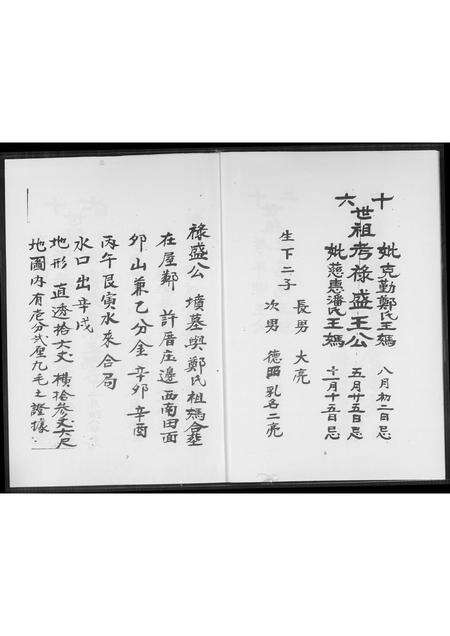 十六
世祖考祿盛王公 五月廿五日忌
妣克勤鄭氏王媽 八月初二日忌
妣慈惠潘氏王媽 十一月十五日忌
生下二子
長男 大亮
次男 德 乳名二亮
祿盛公 墳墓與鄭氏祖媽合塟
在屋鄰 許厝庄邊西南田面
卯山兼乙分金辛卯辛酉
丙午艮寅水來合局
水口出辛戌
地形 直透拾六丈 橫拾叁丈六尺
地圖內有壱分弍厘九毛之證據